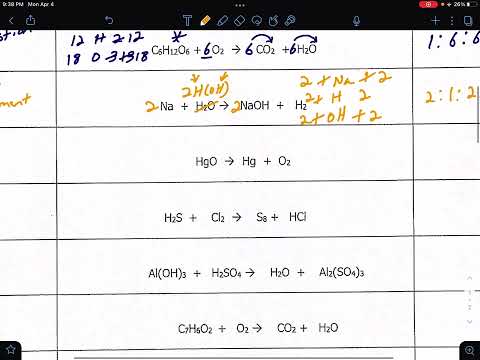 9:38 PM Mon Apr 4
26%
12 H 2 12
18 O 3 +3 18
C₆H₁₂O₆ + 6 O₂ → 6 CO₂ + 6 H₂O
1:6:6
2H(OH)
2 Na + H₂O → 2 NaOH + H₂
2 + Na + 2
2 + H 2
2 + OH + 2
2:1:2
HgO → Hg + O₂
H₂S + Cl₂ → S₈ + HCl
Al(OH)₃ + H₂SO₄ → H₂O + Al₂(SO₄)₃
C₇H₆O₂ + O₂ → CO₂ + H₂O